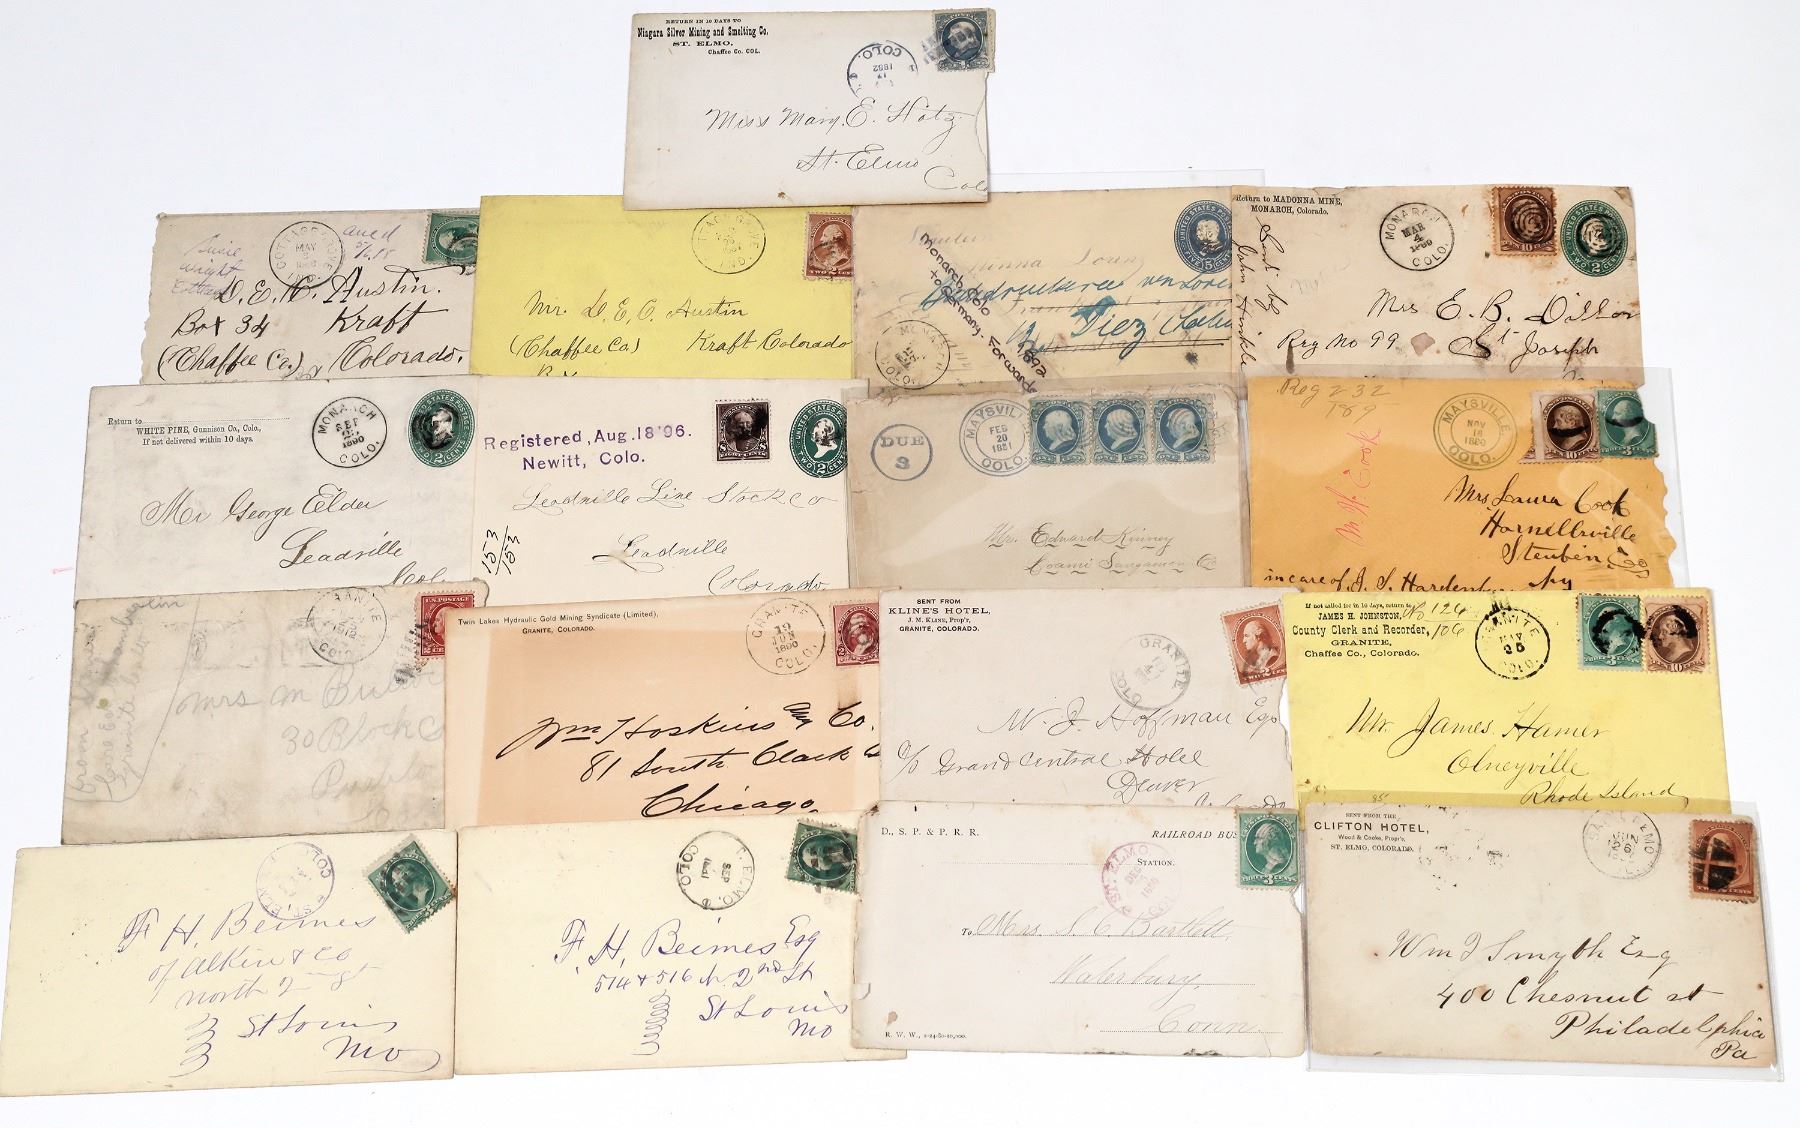 RETURN IN 10 DAYS TO
Niagara Silver Mining and Smelting Co.
ST. ELMO,
Chaffee Co. COL.
COLO.
1882
Miss Mary. E. Hotz
St. Elmo
Colo
Susie
Wright
Cottage
COTTAGE GROVE
MAY
IND.
D. E. C. Austin.
Box 34
Kraft
(Chaffee Co.)
Colorado.
GROVE
IND.
TWO CENTS
Mr. D. E. C. Austin
(Chaffee Co)
Kraft Colorado
Monarch, Colo
to Germany.
Forwarded
1892
UNITED STATES POSTAGE
FIVE 5 CENTS
Minna Lorenz
Diez
MONARCH
COLO.
Return to MADONNA MINE,
MONARCH, Colorado.
Sent by
John Hinkle
MONARCH
MAR
4
COLO.
10
2
Mrs E. B. Dillon
Reg No 99
St Joseph
Return to
WHITE PINE, Gunnison Co, Colo,
If not delivered within 10 days
MONARCH
SEP
1890
COLO.
2 CENTS
Mr George Elder
Leadville
Col
Registered, Aug. 18 '96.
Newitt, Colo.
UNITED STATES
TWO 2 CENTS
Leadville Line Stock Co
1553
153
Leadville
Colorado
DUE
3
MAYSVILLE
FEB
20
1881
COLO.
Mr. Edward Kinney
Loami Sangamon Co
Reg 232
189
M. H. Cook
MAYSVILLE.
NOV
18
1880
COLO.
Mrs Laura Cook
Hornellsville
Steuben Co
in care of J. S. Hardenburg
Ny
GRANITE
1912
COLO.
U.S. POSTAGE
2 CENTS 2
Granite Colo
Mrs M
30 Block C
Pueblo
Twin Lakes Hydraulic Gold Mining Syndicate (Limited),
GRANITE, COLORADO.
GRANITE
19
JUN
1890
COLO.
Wm Hoskins Co.
81 South Clark
Chicago
SENT FROM
KLINE'S HOTEL,
J. M. KLINE, Prop'r,
GRANITE, COLORADO.
GRANITE
COLO.
W. J. Hoffman Esq
c/o Grand Central Hotel
Denver
If not called for in 10 days, return to
JAMES H. JOHNSTON,
County Clerk and Recorder,
GRANITE,
Chaffee Co., Colorado.
No 124
106
GRANITE
MAY
COLO.
Mr. James Hamer
Olneyville
Rhode Island
ST. ELMO
COLO.
F H, Beimes
of Alkin & Co
North 2nd St
St Louis
Mo
ST. ELMO.
SEP
COLO
F. H. Beimes Esq
514 & 516 N. 2nd St
St Louis
Mo
D., S. P. & P. R. R.
RAILROAD BUS
STATION.
ST. ELMO
DEC
COL
THREE CENTS
To Mrs. S. C. Bartlett
Waterbury,
Conn.
R. W. W., 1-24-80-20,000.
85
SENT FROM THE
CLIFTON HOTEL,
Wood & Cooke, Prop'r.
ST. ELMO, COLORADO.
Wm J Smyth Esq
400 Chesnut st
Philadelphia
Pa